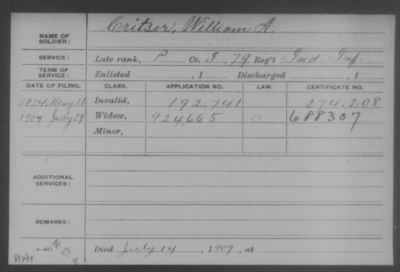 NAME OF SOLDIER: Critser, William A.
SERVICE: Late rank, P Co. I, 79 Reg't Ind Inf.
TERM OF SERVICE: Enlisted , 1 Discharged , 1
DATE OF FILING. CLASS. APPLICATION NO. LAW. CERTIFICATE NO.
1874 May 18 Invalid, 192.741 274.208
1907 July 29 Widow, 924,665 688307
Minor,
ADDITIONAL SERVICES:
REMARKS:
Died July 14, 1907, at